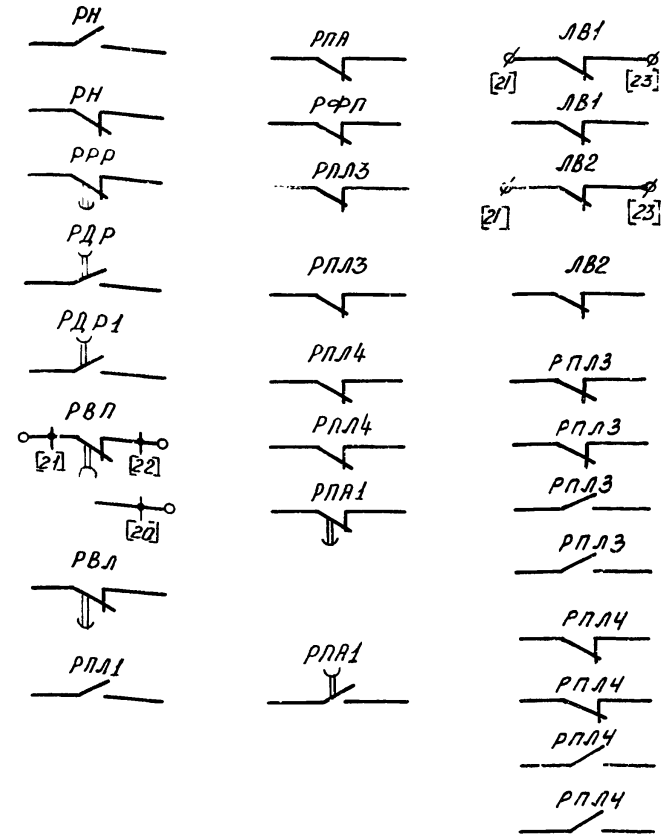 РН
РН
РРР
РДР
РДР1
РВП
[21] [22]
[20]
РВЛ
РПЛ1
РПА
РФП
РПЛ3
РПЛ3
РПЛ4
РПЛ4
РПА1
РПА1
ЛВ1
[21] [23]
ЛВ1
ЛВ2
[21] [23]
ЛВ2
РПЛ3
РПЛ3
РПЛ3
РПЛ3
РПЛ4
РПЛ4
РПЛ4
РПЛ4